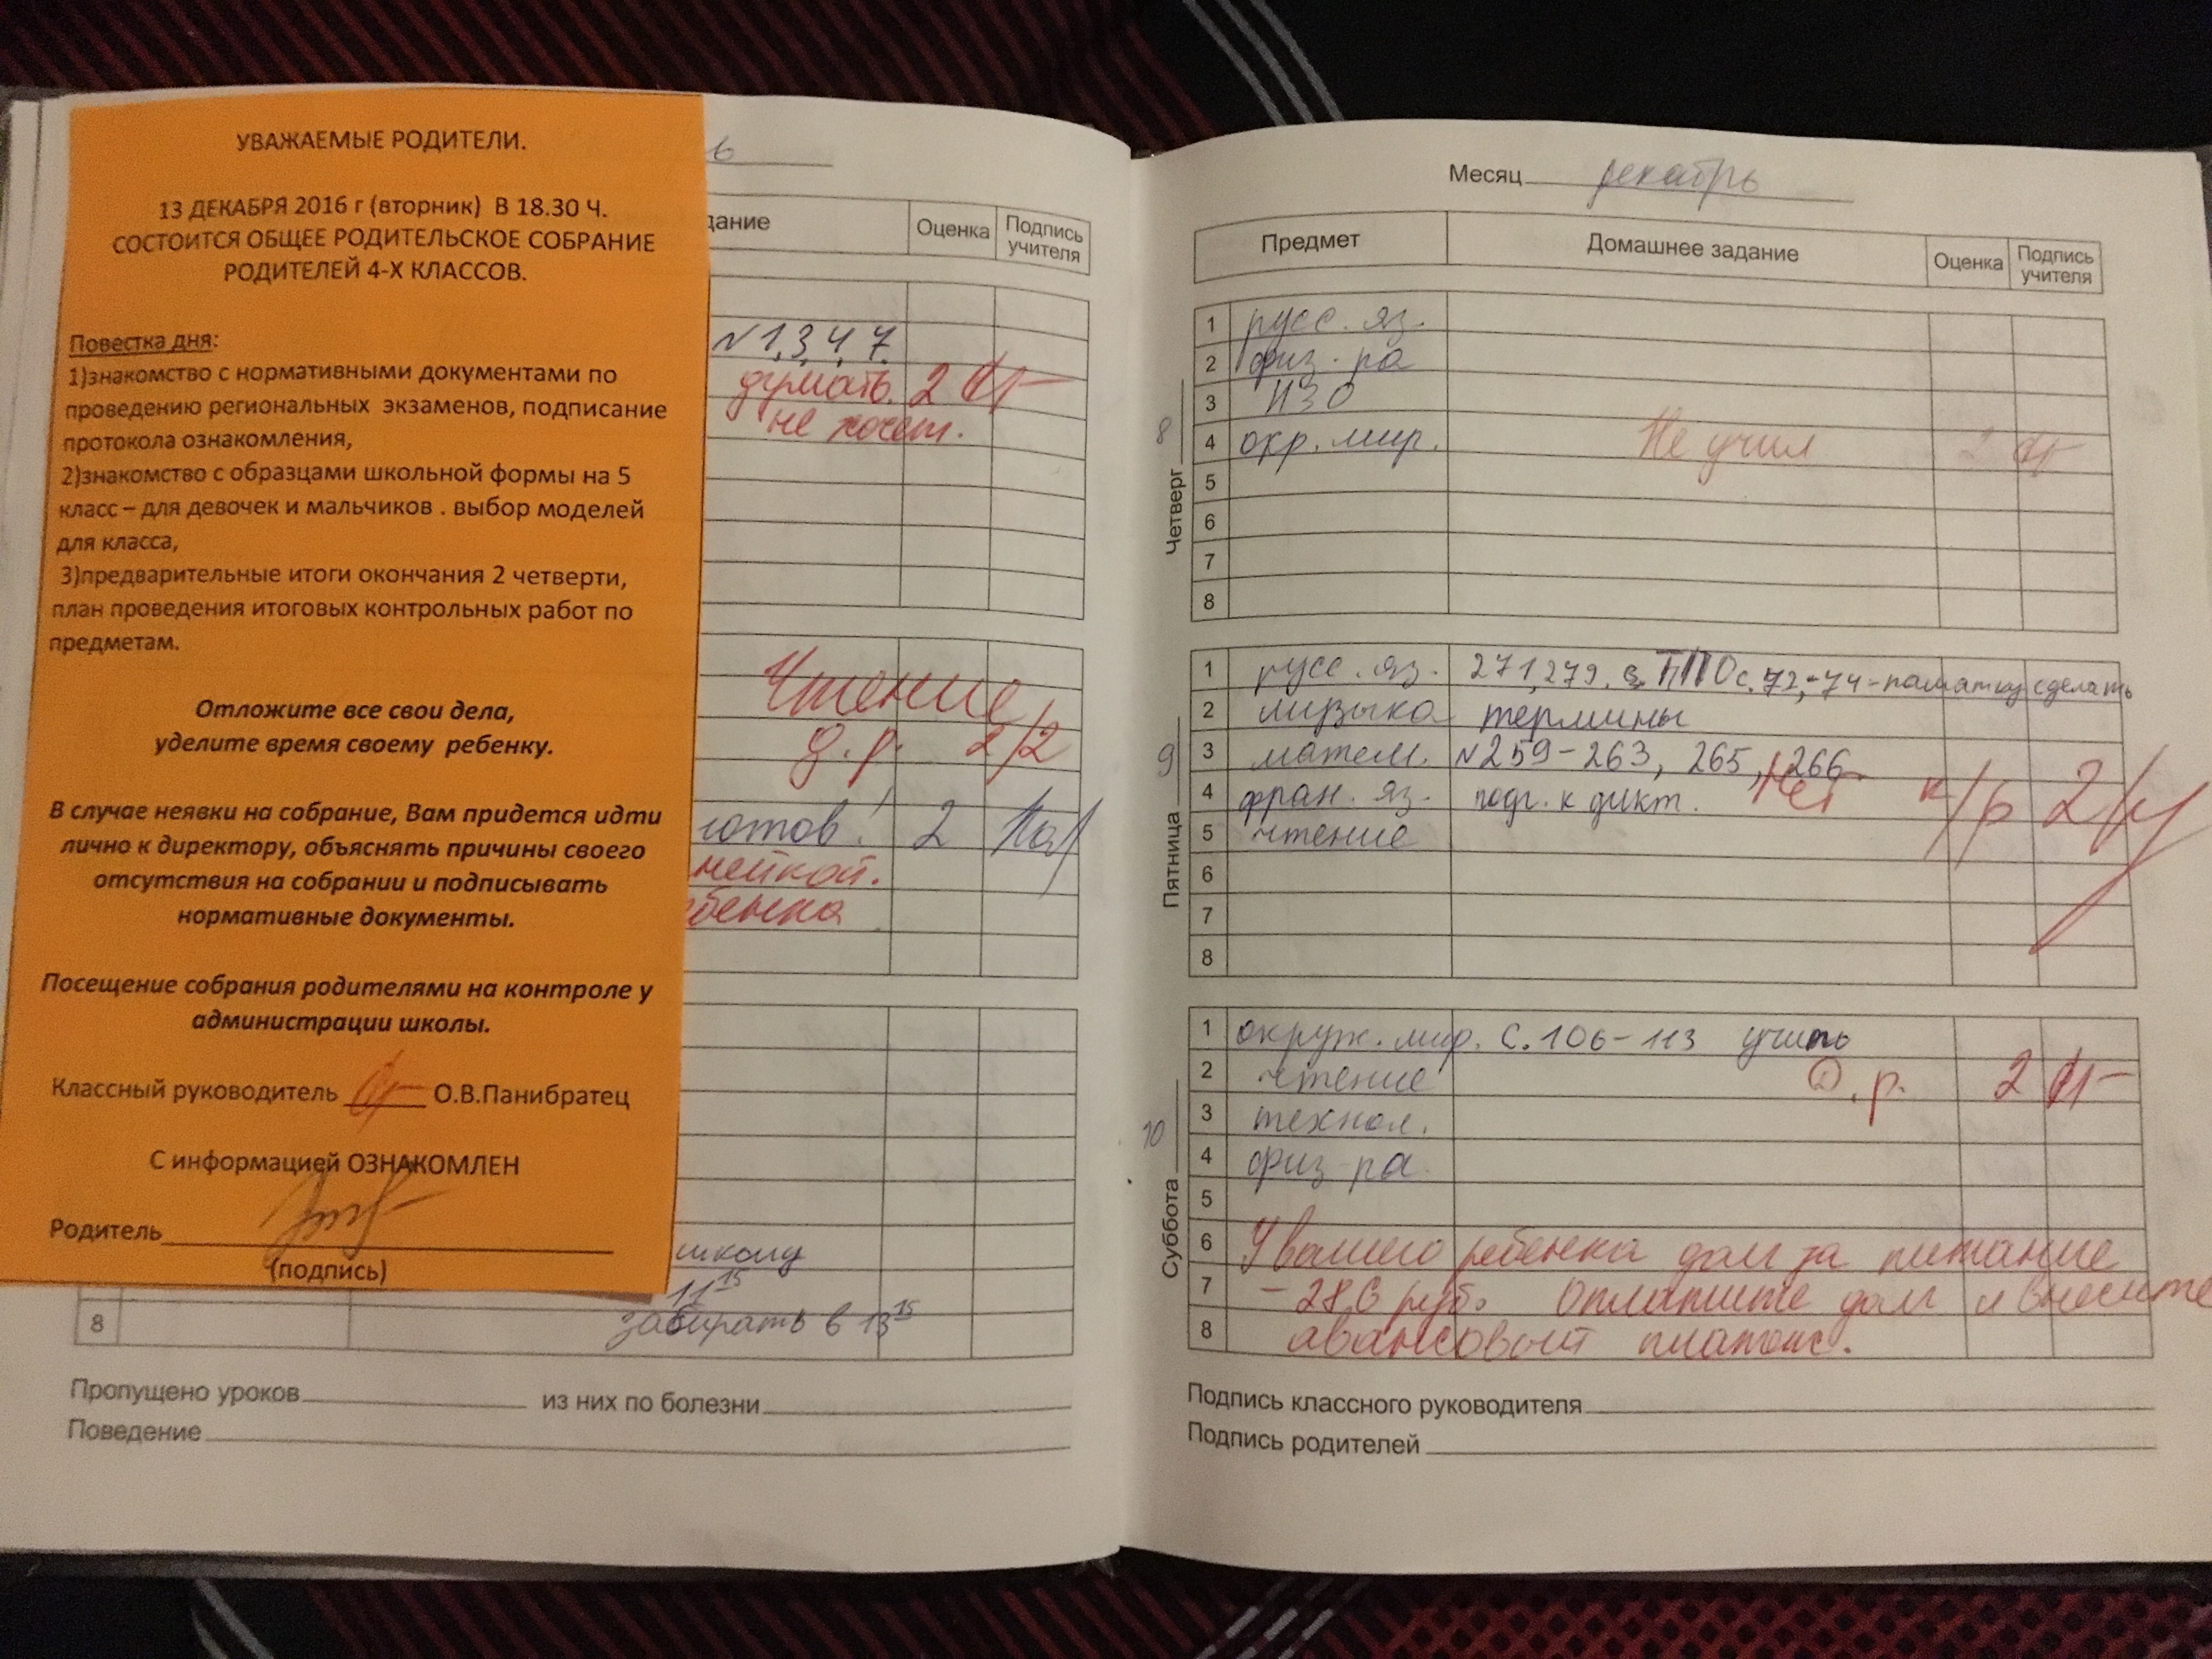 УВАЖАЕМЫЕ РОДИТЕЛИ.
13 ДЕКАБРЯ 2016 г (вторник) В 18.30 Ч.
СОСТОИТСЯ ОБЩЕЕ РОДИТЕЛЬСКОЕ СОБРАНИЕ
РОДИТЕЛЕЙ 4-Х КЛАССОВ.
Повестка дня:
1)знакомство с нормативными документами по
проведению региональных экзаменов, подписание
протокола ознакомления,
2)знакомство с образцами школьной формы на 5
класс – для девочек и мальчиков . выбор моделей
для класса,
3)предварительные итоги окончания 2 четверти,
план проведения итоговых контрольных работ по
предметам.
Отложите все свои дела,
уделите время своему ребенку.
В случае неявки на собрание, Вам придется идти
лично к директору, объяснять причины своего
отсутствия на собрании и подписывать
нормативные документы.
Посещение собрания родителями на контроле у
администрации школы.
Классный руководитель О.В.Панибратец
С информацией ОЗНАКОМЛЕН
Родитель
(подпись)
ь
дание Оценка Подпись учителя
№1,3,4,7.
думать. 2
не хочет.
Чтение
д.р. 2/2
готов! 2
нейкой.
ебенка
школу
11 15
8 забирать в 13 15
Пропущено уроков из них по болезни
Поведение
Месяц декабрь
Предмет Домашнее задание Оценка Подпись учителя
Четверг 8
1 русс. яз.
2 физ-ра
3 ИЗО
4 окр. мир. Не учил 2
5
6
7
8
Пятница 9
1 русс. яз. 271,279. ТПО с. 72,-74-памятку сделать
2 музыка термины
3 матем. №259-263, 265, 266
4 фран. яз. подг. к дикт. Нет к/р 2
5 чтение
6
7
8
Суббота 10
1 окруж. мир. с. 106-113 учить
2 чтение Д.р. 2
3 технол.
4 физ-ра.
5
6 У вашего ребенка долг за питание
7 - 286 руб. Оплатите долг и внесите
8 авансовый платеж.
Подпись классного руководителя
Подпись родителей